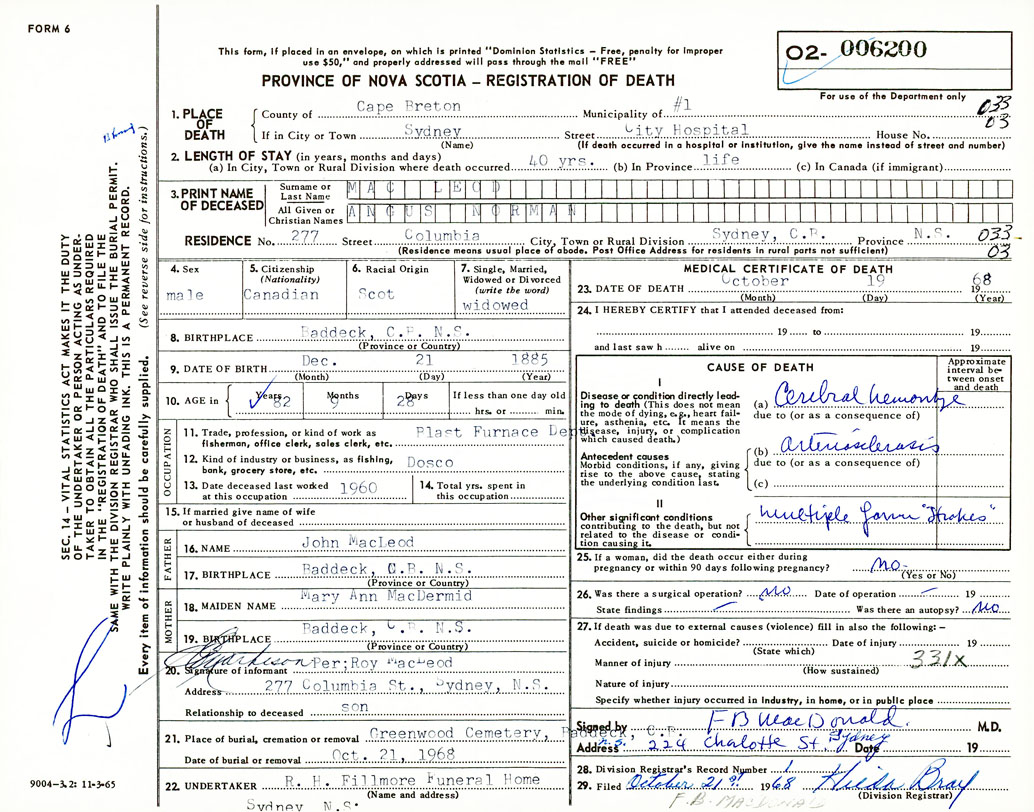 FORM 6
This form, if placed in an envelope, on which is printed "Dominion Statistics – Free, penalty for improper
use $50," and properly addressed will pass through the mail "FREE"
02- 006200
PROVINCE OF NOVA SCOTIA – REGISTRATION OF DEATH
For use of the Department only
SEC. 14 – VITAL STATISTICS ACT MAKES IT THE DUTY
OF THE UNDERTAKER OR PERSON ACTING AS UNDER-
TAKER TO OBTAIN ALL THE PARTICULARS REQUIRED
IN THE "REGISTRATION OF DEATH" AND TO FILE THE
SAME WITH THE DIVISION REGISTRAR WHO SHALL ISSUE THE BURIAL PERMIT.
WRITE PLAINLY WITH UNFADING INK. THIS IS A PERMANENT RECORD.
Every item of information should be carefully supplied. (See reverse side for instructions.)
1. PLACE OF DEATH
County of Cape Breton Municipality of #1 033
03
If in City or Town Sydney Street City Hospital House No.
(Name) (If death occurred in a hospital or institution, give the name instead of street and number)
2. LENGTH OF STAY (in years, months and days)
(a) In City, Town or Rural Division where death occurred 40 yrs. (b) In Province life (c) In Canada (if immigrant)
3. PRINT NAME OF DECEASED
Surname or Last Name MAC LEOD
All Given or Christian Names ANGUS NORMAN
RESIDENCE No. 277 Street Columbia City, Town or Rural Division Sydney, C.B. Province N.S. 033
(Residence means usual place of abode. Post Office Address for residents in rural parts not sufficient) 03
4. Sex
male
5. Citizenship
(Nationality)
Canadian
6. Racial Origin
Scot
7. Single, Married,
Widowed or Divorced
(write the word)
widowed
8. BIRTHPLACE Baddeck, C.B. N.S.
(Province or Country)
9. DATE OF BIRTH Dec. 21 1885
(Month) (Day) (Year)
10. AGE in Years 82 Months 9 Days 28 If less than one day old
hrs. or min.
OCCUPATION
11. Trade, profession, or kind of work as Blast Furnace Dept.
fisherman, office clerk, sales clerk, etc.
12. Kind of industry or business, as fishing, Dosco
bank, grocery store, etc.
13. Date deceased last worked 1960
at this occupation
14. Total yrs. spent in
this occupation
15. If married give name of wife
or husband of deceased
FATHER
16. NAME John MacLeod
17. BIRTHPLACE Baddeck, C.B. N.S.
(Province or Country)
MOTHER
18. MAIDEN NAME Mary Ann MacDermid
19. BIRTHPLACE Baddeck, C.B. N.S.
(Province or Country)
20. Signature of informant Per;Roy MacLeod
Address 277 Columbia St., Sydney, N.S.
Relationship to deceased son
21. Place of burial, cremation or removal Greenwood Cemetery, Baddeck, C.B.
Date of burial or removal Oct. 21, 1968
22. UNDERTAKER R. H. Fillmore Funeral Home
(Name and address)
Sydney N.S.
9004–3.2: 11-3-65
MEDICAL CERTIFICATE OF DEATH
23. DATE OF DEATH October 19 1968
(Month) (Day) (Year)
24. I HEREBY CERTIFY that I attended deceased from:
19 to 19
and last saw h alive on 19
CAUSE OF DEATH
Approximate
interval be-
tween onset
and death
I
Disease or condition directly lead-
ing to death (This does not mean
the mode of dying, e.g., heart fail-
ure, asthenia, etc. It means the
disease, injury, or complication
which caused death.)
(a) Cerebral hemorrhage
due to (or as a consequence of)
Antecedent causes
Morbid conditions, if any, giving
rise to the above cause, stating
the underlying condition last.
(b) arteriosclerosis
due to (or as a consequence of)
(c)
II
Other significant conditions
contributing to the death, but not
related to the disease or condi-
tion causing it.
multiple "Strokes"
25. If a woman, did the death occur either during
pregnancy or within 90 days following pregnancy? no
(Yes or No)
26. Was there a surgical operation? no Date of operation – 19
State findings – Was there an autopsy? No
27. If death was due to external causes (violence) fill in also the following: –
Accident, suicide or homicide? Date of injury 19
(State which)
Manner of injury 331X
(How sustained)
Nature of injury
Specify whether injury occurred in Industry, in home, or in public place
Signed by F B MacDonald. M.D.
Address 224 Charlotte St. Sydney N.S. Date 19
28. Division Registrar's Record Number
29. Filed October 21st 1968 Hilda Bray
(Division Registrar)
F. B. MACDONALD